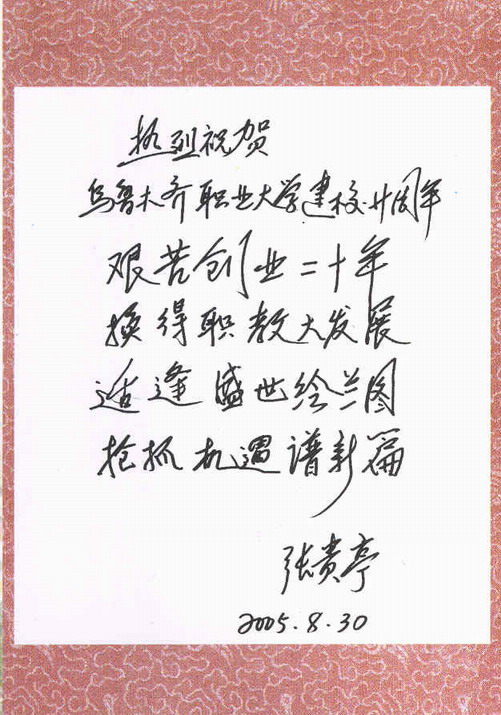 热烈祝贺
乌鲁木齐职业大学建校廿周年
艰苦创业二十年
换得职教大发展
适逢盛世绘兰图
抢抓机遇谱新篇
张贵亭
2005.8.30